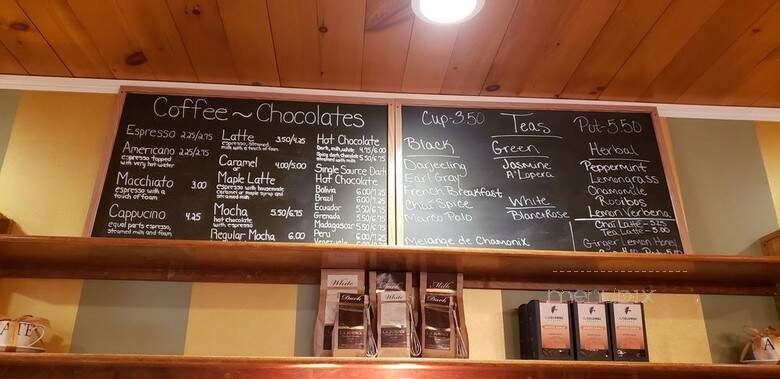 Coffee ~ Chocolates
Espresso 2.25/2.75
Americano 2.25/2.75
espresso topped
with very hot water
Macchiato 3.00
espresso with a
touch of foam
Cappucino 4.25
equal parts espresso,
steamed milk and foam
Latte 3.50/4.25
espresso, steamed
milk with a touch of foam
Caramel 4.00/5.00
or
Maple Latte
espresso with housemade
caramel or maple syrup and
steamed milk
Mocha 5.50/6.75
hot chocolate
with espresso
Regular Mocha 6.00
Hot Chocolate
Dark, milk, white 4.75/6.00
Spicy dark chocolate 5.50/6.75
Single Source Dark
Hot Chocolate
Bolivia 6.00/7.25
Brazil 6.00/7.25
Ecuador 5.50/6.75
Grenada 5.50/6.75
Madagascar 5.50/6.75
Peru 6.00/7.25
Venezuela
Cup-3.50 Teas Pot-5.50
Black
Darjeeling
Earl Gray
French Breakfast
Chai Spice
Marco Polo
Melange de Chamonik
Green
Jasmine
A'L'opera
White
Blanc&Rose
Herbal
Peppermint
Lemongrass
Chamomile
Rooibos
Lemon Verbena
Chai Latte
Tea Latte-5.00
Ginger Lemon Honey
White
Dark
Dark
White
Milk
Dark
LA COLOMBE
LA COLOMBE
LA COLOMBE
menupix
ATES
A